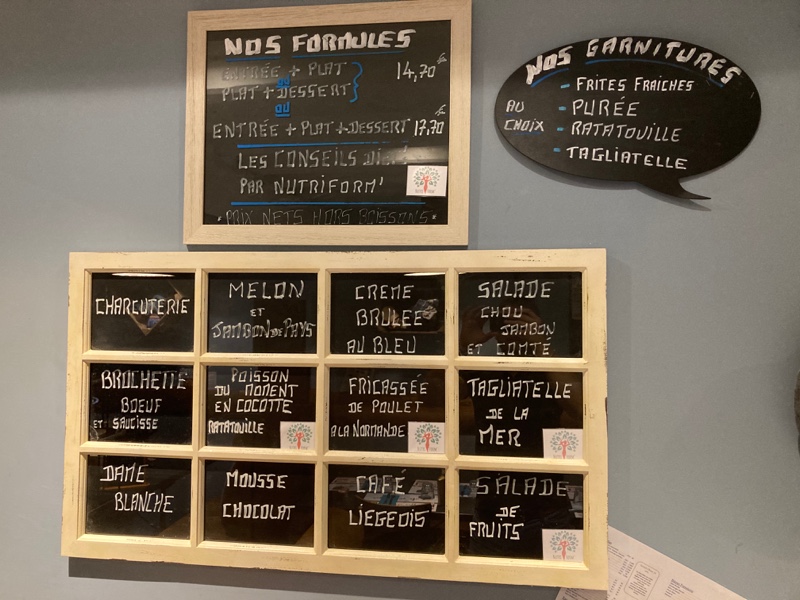 NOS FORMULES
ENTRÉE + PLAT
ou
PLAT + DESSERT
14,70€
ou
ENTRÉE + PLAT + DESSERT 17,70€
LES CONSEILS
PAR NUTRIFORM'
• PRIX NETS HORS BOISSONS •
NOS GARNITURES
AU CHOIX
- FRITES FRAICHES
- PURÉE
- RATATOUILLE
- TAGLIATELLE
CHARCUTERIE
MELON
ET
JAMBON DE PAYS
CREME
BRULEE
AU BLEU
SALADE
CHOU
JAMBON
ET COMTÉ
BROCHETTE
BOEUF
ET SAUCISSE
POISSON
DU MOMENT
EN COCOTTE
RATATOUILLE
FRICASSÉE
DE POULET
A LA NORMANDE
TAGLIATELLE
DE LA
MER
DAME
BLANCHE
MOUSSE
CHOCOLAT
CAFÉ
LIEGEOIS
SALADE
DE
FRUITS